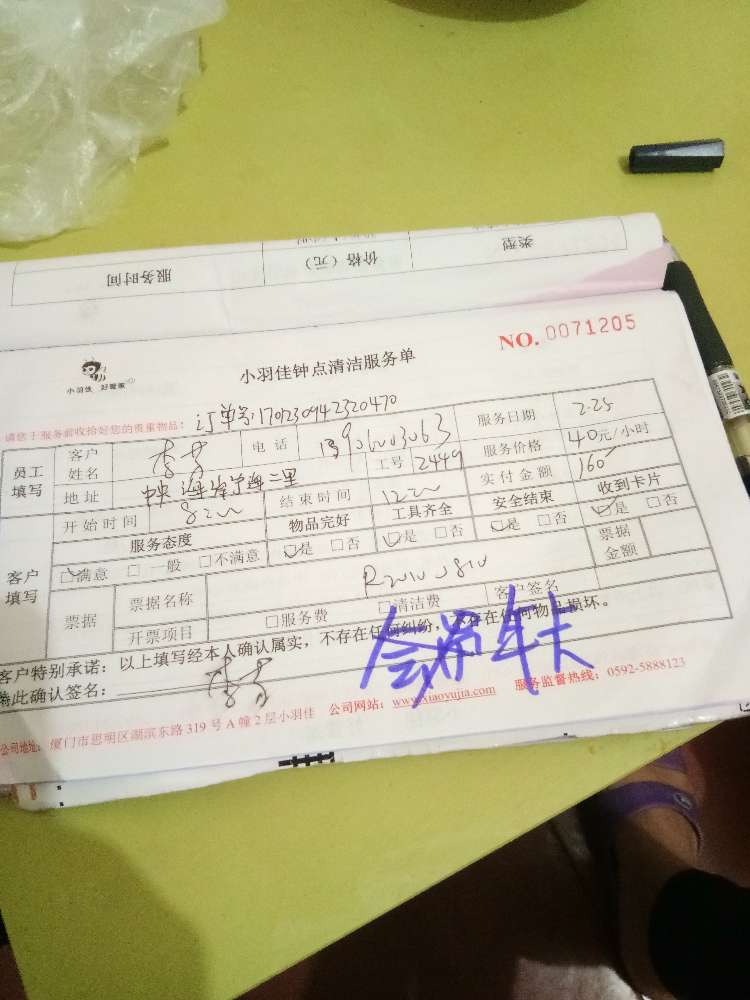 类型 价格（元） 服务时间
NO. 0071205
小羽佳 好管家
小羽佳钟点清洁服务单
请您于服务前收拾好您的贵重物品：
订单号:1702309442320470
员工填写 客户姓名 电话 服务日期 2.25
地址 工号 2449 服务价格 40元/小时
开始时间 结束时间 实付金额 160
客户填写 服务态度 物品完好 工具齐全 安全结束 收到卡片
□满意 □一般 □不满意 □是 □否 □是 □否 □是 □否 □是 □否
票据 票据名称 客户签名 票据金额
开票项目 □服务费 □清洁费
客户特别承诺：以上填写经本人确认属实，不存在任何纠纷，不存在任何物品损坏。
特此确认签名：
年卡
公司地址：厦门市思明区湖滨东路319号A幢2层小羽佳 公司网站：www.xiaoyujia.com 服务监督热线：0592-5888123